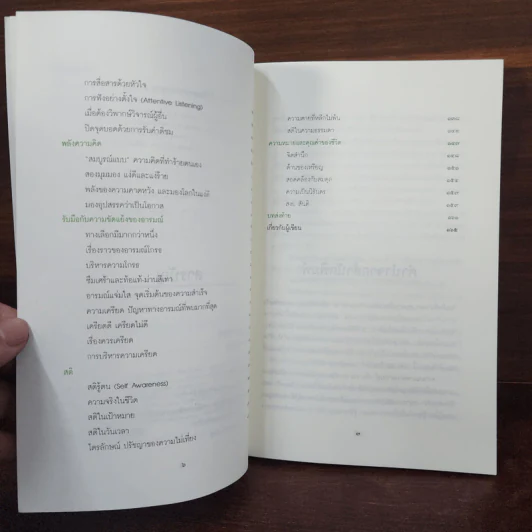 การสื่อสารด้วยหัวใจ
การฟังอย่างตั้งใจ (Attentive Listening)
เมื่อต้องวิพากษ์วิจารณ์ผู้อื่น
ปิดจุดบอดด้วยการรับคำติชม
พลังความคิด
"สมบูรณ์แบบ" ความคิดที่ทำร้ายตนเอง
สองมุมมอง แง่ดีและแง่ร้าย
พลังของความคาดหวัง และมองโลกในแง่ดี
มองอุปสรรคว่าเป็นโอกาส
รับมือกับความขัดแย้งของอารมณ์
ทางเลือกมีมากกว่าหนึ่ง
เรื่องราวของอารมณ์โกรธ
บริหารความโกรธ
ซึมเศร้าและท้อแท้-ม่านสีเทา
อารมณ์แจ่มใส จุดเริ่มต้นของความสำเร็จ
ความเครียด ปัญหาทางอารมณ์ที่พบมากที่สุด
เครียดดี เครียดไม่ดี
เรื่องควรเครียด
การบริหารความเครียด
สติ
สติรู้ตน (Self Awareness)
ความจริงในชีวิต
สติในเป้าหมาย
สติในวันเวลา
ไตรลักษณ์ ปรัชญาของความไม่เที่ยง
ความตายที่หลีกไม่พ้น
สติในความธรรมดา
ความหมายและคุณค่าของชีวิต
จิตสำนึก
ด้านของเหรียญ
สอดคล้องกับสมดุล
ความเป็นนิรันดร
สงบ สันติ
บทส่งท้าย
เกี่ยวกับผู้เขียน